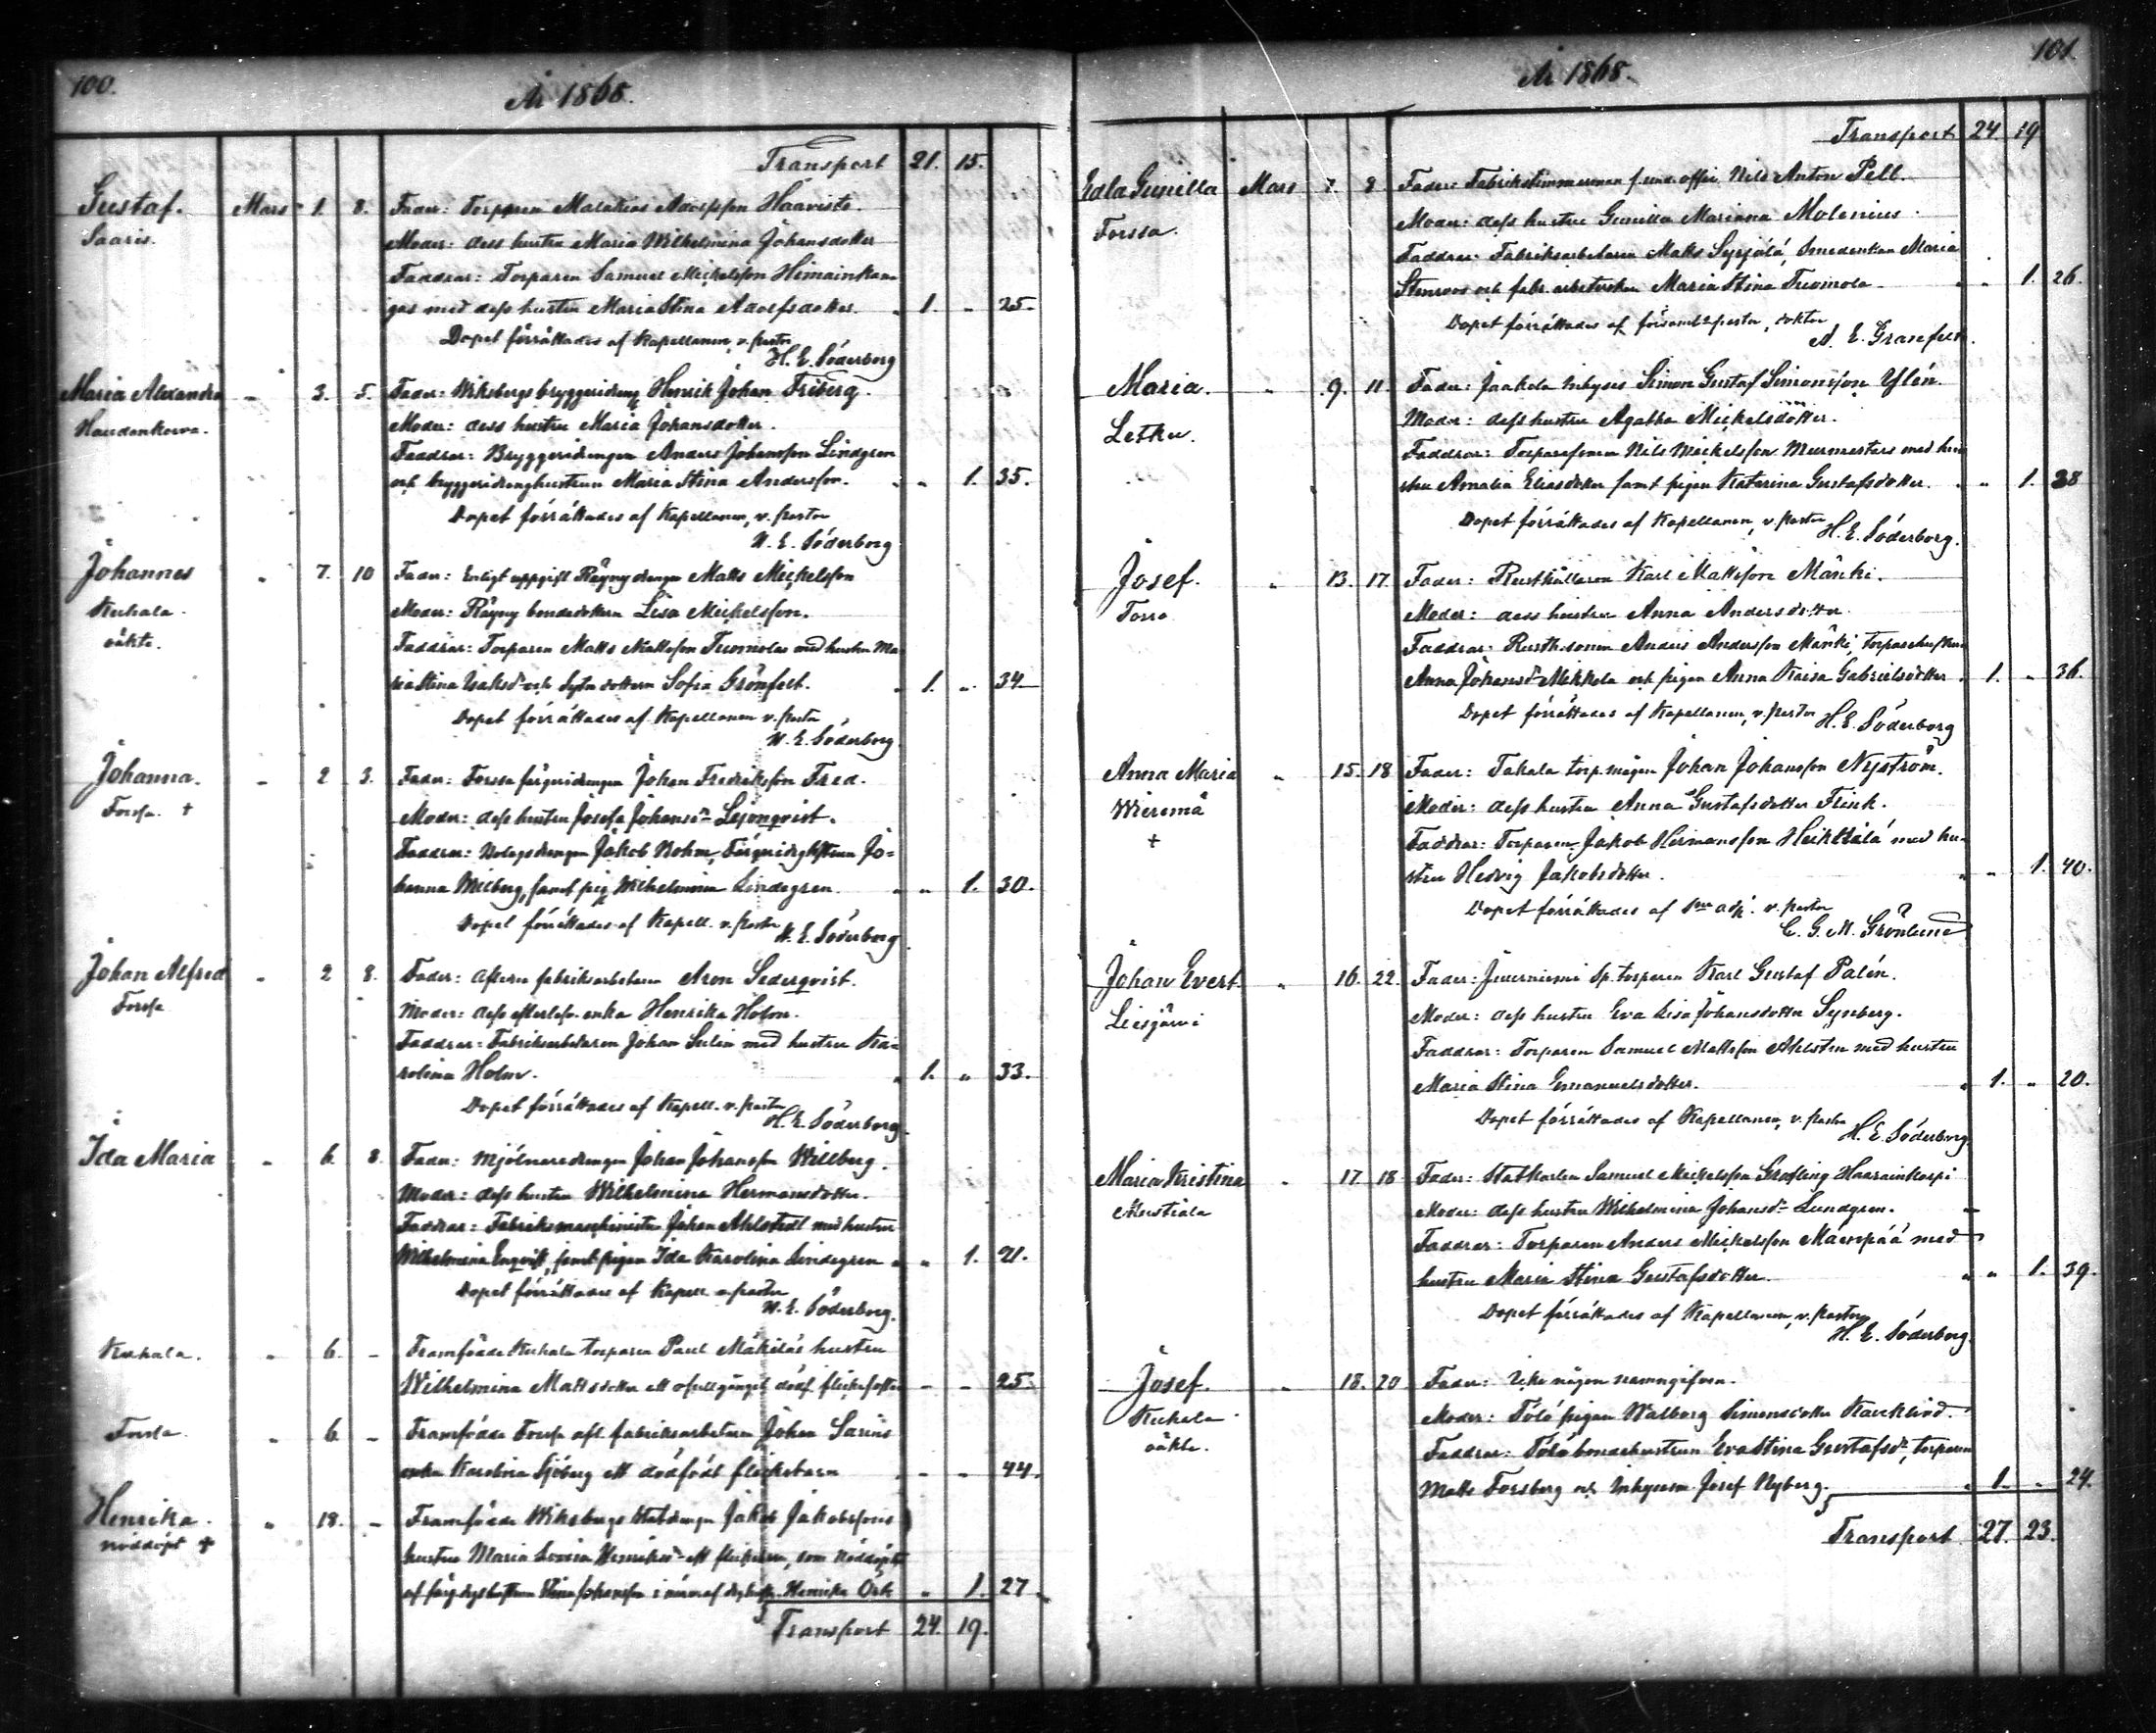 100.
År 1868.
Transport 21. 15.
Gustaf. Mars 1. 8. Fader: Torparen Malakias Adolfsson Haavisto.
Saaris. Moder: dess hustru Maria Wilhelmina Johansdotter
Faddrar: Torparen Samuel Mickelsson Himainkan
gas med dess hustru Maria Stina Adolfsdotter. " 1. " 25.
Dopet förrättades af Kapellanen, v. Pastor
H. E. Söderborg
Maria Alexandra " 3. 5. Fader: Wiksbergs bryggeridreng Henrik Johan Friberg.
Haudankorva. Moder: dess hustru Maria Johansdotter.
Faddrar: Bryggeridrengen Anders Johansson Lindgren
och bryggeridrenghustrun Maria Stina Andersson. " " 1. 35.
Dopet förrättades af Kapellanen, v. Pastor
H. E. Söderborg
Johannes " 7. 10 Fader: Enligt uppgift Räyny drengen Matts Mickelsson
Kuhala. Moder: Räyny bondedottern Lisa Mickelsson.
oäkta. Faddrar: Torparen Matts Mattsson Tuomolas med hustru Ma
ria Stina Isaksdr och Sytn dottern Sofia Grönfelt. " 1. " 34
Dopet förrättades af Kapellanen v. Pastor
H. E. Söderborg
Johanna. " 2 3. Fader: Forssa färgeridrengen Johan Fredriksson Fred.
Forssa. + Moder: dess hustru Josefa Johansdr Lejonqvist.
Faddrar: Bolagsdrengen Jakob Bohm, Färgeridrghustrun Jo=
hanna Wilberg, samt pig. Wilhelmina Lindegren. " " 1. 30.
Dopet förrättades af Kapell. v. Pastor
H. E. Söderborg
Johan Alfred " 2 8. Fader: aflidne fabriksarbetaren Aron Sederqvist.
Forssa Moder: dess efterlefv. enka Henrika Holm.
Faddrar: Fabriksarbetaren Johan Selin med hustru Ka=
rolina Holm. " 1. " 33.
Dopet förrättades af Kapell. v. Pastor
H. E. Söderborg
Ida Maria " 6. 8. Fader: Mjölnaredrengen Johan Johansson Willberg.
Moder: dess hustru Wilhelmina Hermansdotter.
Faddrar: Fabriksmaschinisten Johan Ahlstedt med hustru
Wilhelmina Enqvist, samt pigan Ida Karolina Lindegren " " 1. 21.
Dopet förrättades af Kapell. v. Pastor
H. E. Söderborg.
Kuhala. " 6. - Framfödde Kuhala torparen Paul Mäkiläs hustru
Wilhelmina Mattsdotter ett ofullgånget dödf. flickefoster - - 25.
Forssa " 6. - Framfödde Forssa afl. fabriksarbetaren Johan Sarins
enka Karolina Sjöberg ett dödfödt flickebarn - - 44.
Henrika. " 18. - Framfödde Wiksbergs statdrenge Jakob Jakobssons
nöddöpt + hustru Maria Lovisa Henriksdr ett flickebarn, som nöddöptes
af färgdrghustrun Stina Johansson i närvaro af drghustr. Henrika Ork " 1. 27.
Transport 24. 19.
101.
År 1868.
Transport 24. 19
Edla Gunilla Mars 7. 8 Fader: Fabrikstimmerman f. und. offic. Nils Anton Pell.
Forssa. Moder: dess hustru Gunilla Mariana Molenius.
Faddrar: Fabriksarbetaren Matts Syrjälä, Smedenkan Maria
Stenroos och fabr. arbeterskan Maria Stina Tuomola " " 1. 26.
Dopet förrättades af församl:s pastor, doktor
A. E. Granfelt.
Maria. " 9. 11. Fader: Jaakola Inhyses Simon Gustaf Simonsson Ylén.
Letku. Moder: dess hustru Agatha Mickelsdotter.
Faddrar: Torparesonen Nils Mickelsson Murmestars med hu
stru Amalia Eliasdotter samt pigan Katarina Gustafsdotter. " " 1. 38
Dopet förrättades af Kapellanen, v. Pastor
H. E. Söderborg.
Josef. " 13. 17. Fader: Rusthållaren Karl Mattsson Märcki.
Torro. Moder: dess hustru Anna Andersdotter
Faddrar: Rusth.sonen Anders Andersson Märki, torparehustrun
Anna Johansdr Mikkola och pigan Anna Kaisa Gabrielsdotter. 1. " 36.
Dopet förrättades af Kapellanen, v. Pastor H. E. Söderborg
Anna Maria " 15. 18 Fader: Takala torp.mågen Johan Johansson Nyström.
Wieremä Moder: dess hustru Anna Gustafsdotter Flink.
+ Faddrar: Torparen Jakob Hermansson Heikkilä med hu=
stru Hedvig Jakobsdotter. " " 1. 40.
Dopet förrättades af adj. v. Pastor
C. G. M. Grönlund
Johan Evert. " 16. 22. Fader: Sp. torparen Karl Gustaf Palén.
Liesjärvi Moder: dess hustru Eva Lisa Johansdotter Synberg.
Faddrar: Torparen Samuel Mattsson Ahlsten med hustru
Maria Stina Emanuelsdotter. " 1. " 20.
Dopet förrättades af Kapellanen, v. Pastor
H. E. Söderborg
Maria Kristina " 17. 18 Fader: Statkarlen Samuel Mickelsson Haarainkorpi
Mustiala Moder: dess hustru Wilhelmina Johansdr Lundgren.
Faddrar: Torparen Anders Mickelsson Mäenpää med
hustru Maria Stina Gustafsdotter. " " 1. 39.
Dopet förrättades af Kapellanen, v. Pastor
H. E. Söderborg.
Josef. " 18. 20 Fader: Icke någon namngifven.
Kuhala Moder: Tölö pigan Walborg Simonsdotter
oäkta. Faddrar: Tölö bondehustrun Eva Stina Gustafsdr, torparen
Matts Forsberg och Inhysesm. Josef Nyberg. " 1. " 24.
Transport 27. 23.